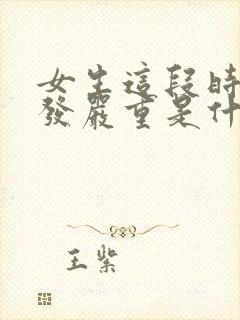 女生這段時
發嚴重是什
王紫